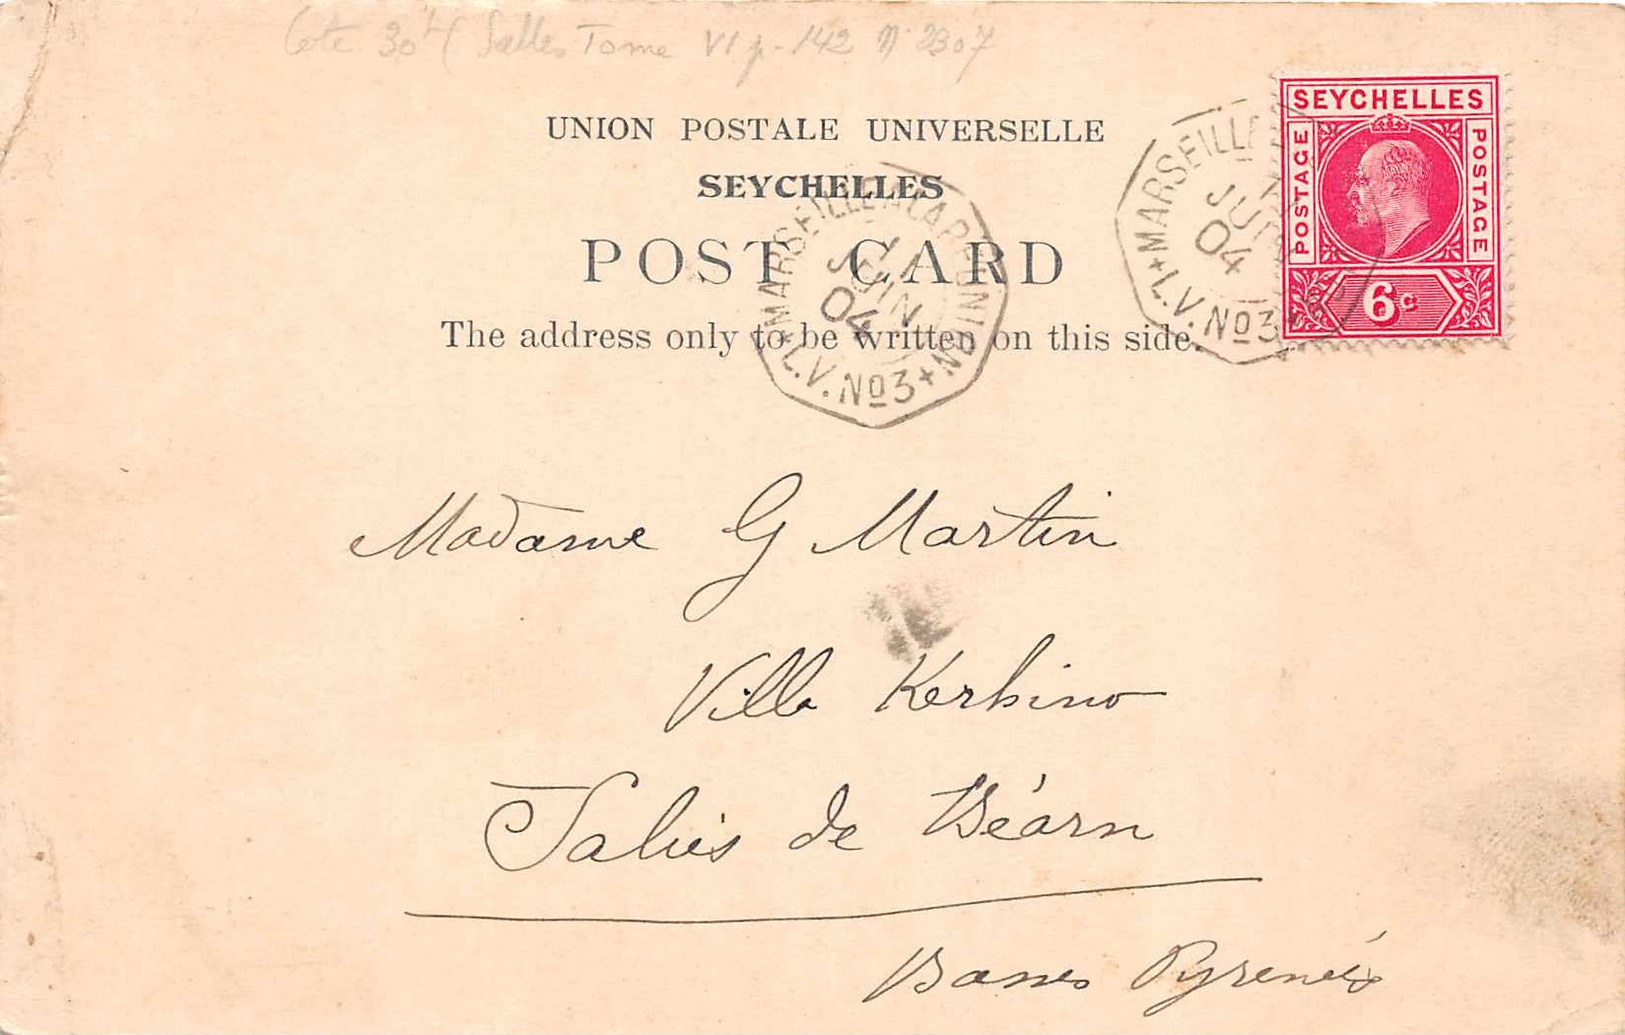 Cote 30 Salles Tome VI p. 142 N° 2307
UNION POSTALE UNIVERSELLE
SEYCHELLES
POST CARD
The address only to be written on this side.
SEYCHELLES
POSTAGE
POSTAGE
6c
MARSEILLE
JUIN
04
L.V. No3
MARSEILLE A LA REUNION
11
JUIN
04
L.V. No3
Madame G Martin
Villa Kerbino
Salies de Béarn
Basses Pyrenées